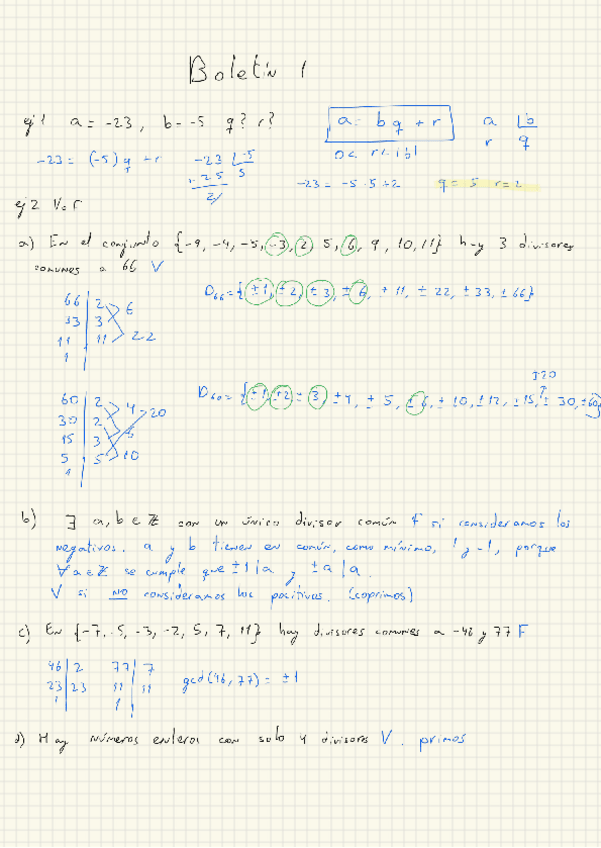 Boletín 1
ej 1 a = -23, b = -5 q? r?
a = bq + r
a | b
r q
0 ≤ r < |b|
-23 = (-5) q + r
-23 | -5
+25 5
2/
-23 = -5·5+2
q = 5 r = 2
ej 2 V o F
a) En el conjunto {-9, -4, -5, -3, 2, 5, 6, 9, 10, 11} hay 3 divisores
comunes a 66 V
66 | 2
33 | 3
11 | 11
1
6
22
D66 = {±1, ±2, ±3, ±6, ±11, ±22, ±33, ±66}
60 | 2
30 | 2
15 | 3
5 | 5
1
4
20
10
±20
D60 = {±1, ±2, ±3, ±4, ±5, ±6, ±10, ±12, ±15, ±30, ±60}
b) ∃ a, b ∈ ℤ con un único divisor común F si consideramos los
negativos. a y b tienen en común, como mínimo, 1 y -1, porque
∀a∈ℤ se cumple que ±1|a y ±a|a.
V si NO consideramos los positivos. (coprimos)
c) En {-7, -5, -3, -2, 5, 7, 11} hay divisores comunes a -46 y 77 F
46 | 2 77 | 7
23 | 23 11 | 11
1 1
gcd(46, 77) = ±1
d) Hay números enteros con solo 4 divisores V. primos